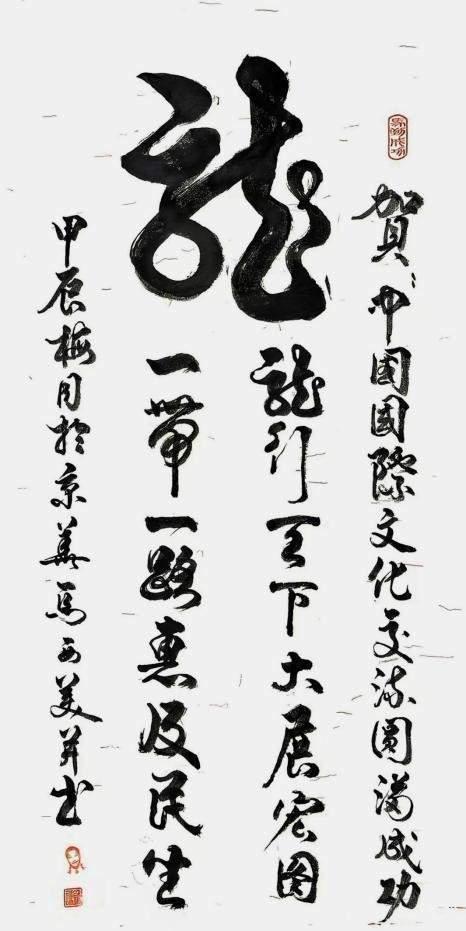 賀:中國國際文化交流圓滿成功
龍
龍行天下大展宏圖
一帶一路惠及民生
甲辰梅月於京華馬美并书